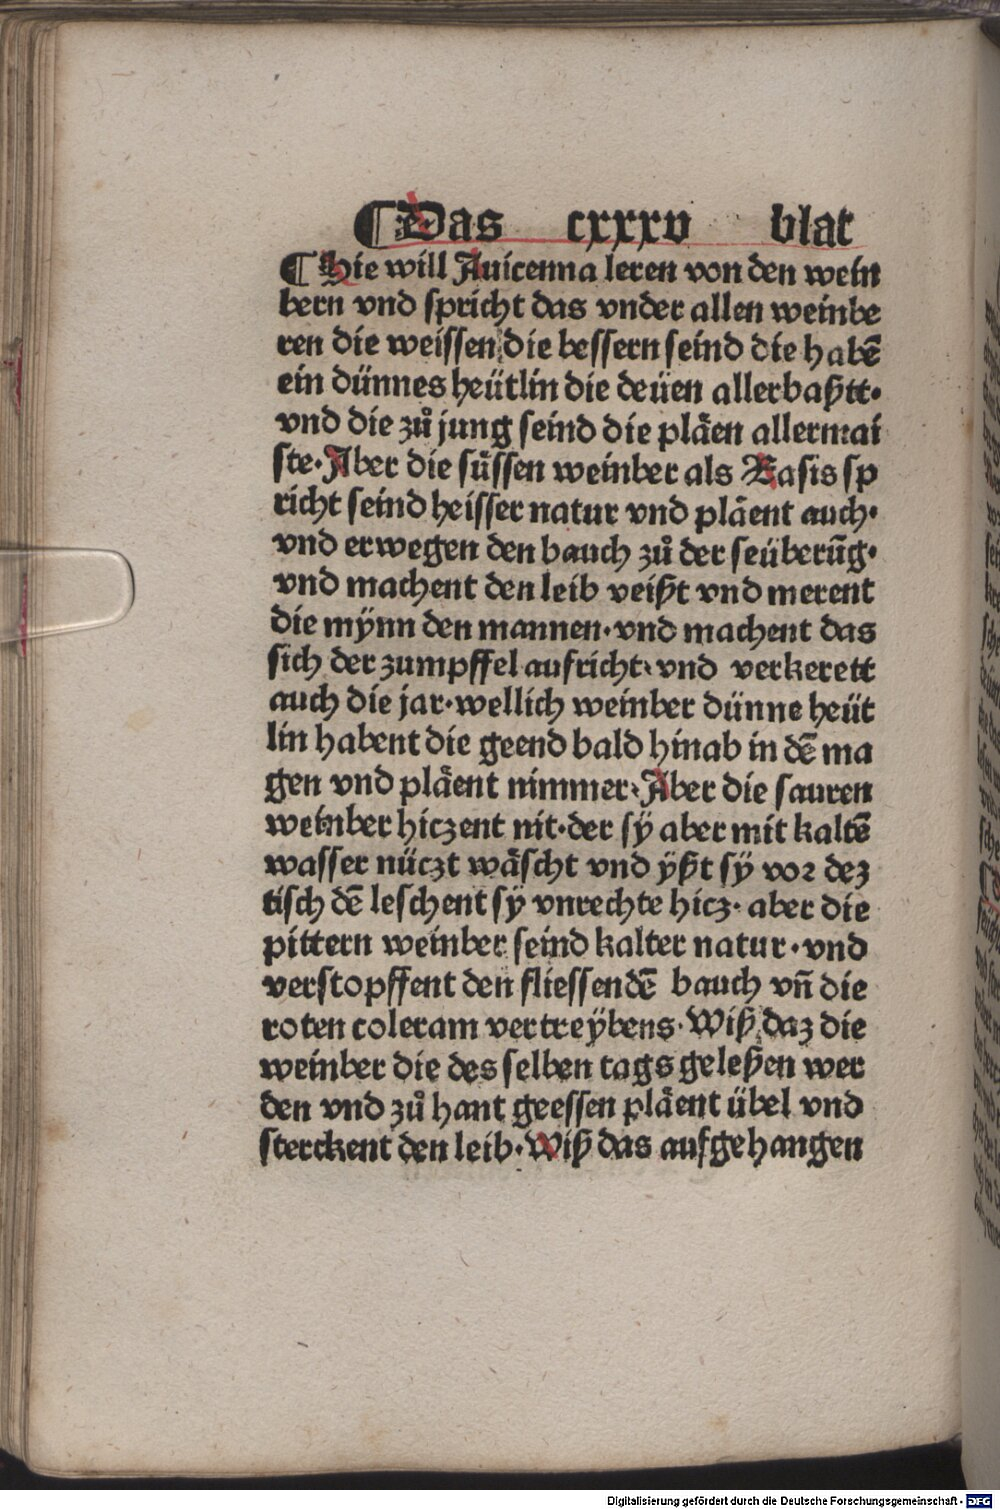 ¶Das cxxxv blat
¶Hie will Auicenna leren von den wein
bern vnd spricht das vnder allen weinbe
ren die weissen die bessern seind die habē
ein dünnes heütlin die deüen allerbaßtt·
vnd die zů jung seind die pläen allermai
ste·Aber die süssen weinber als Rasis sp
richt seind heisser natur vnd pläent auch·
vnd erwegen den bauch zů der seüberūg·
vnd machent den leib veißt vnd merent
die mÿnn den mannen·vnd machent das
sich der zumpffel aufricht·vnd verkerett
auch die jar·wellich weinber dünne heüt
lin habent die geend bald hinab in dē ma
gen vnd pläent nimmer·Aber die sauren
weinber hiczent nit·der sÿ aber mit kaltē
wasser nüczt wäscht vnd ÿßt sÿ vor dez
tisch dē leschent sÿ vnrechte hicz·aber die
pittern weinber seind kalter natur·vnd
verstopffent den fliessendē bauch vñ die
roten coleram vertreÿbens·Wiß daz die
weinber die des selben tags geleßen wer
den vnd zů hant geessen pläent übel vnd
sterckent den leib·Wiß das aufgehangen
Digitalisierung gefördert durch die Deutsche Forschungsgemeinschaft - DFG